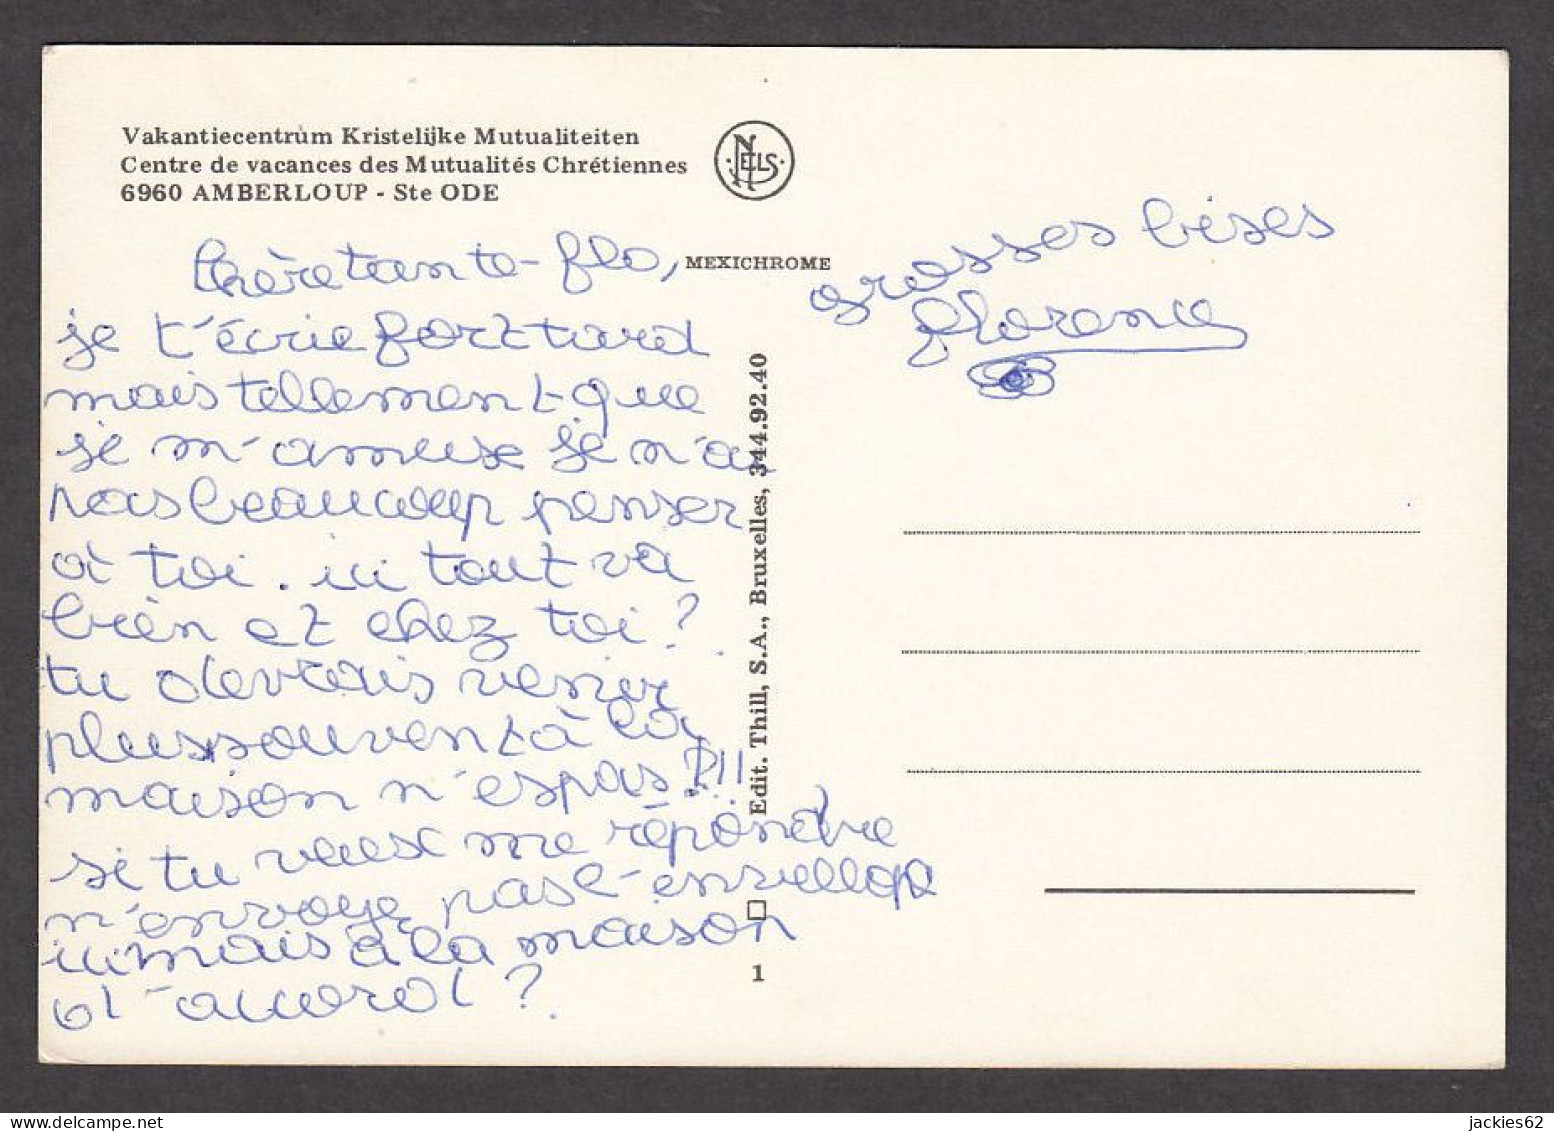 Vakantiecentrum Kristelijke Mutualiteiten
Centre de vacances des Mutualités Chrétiennes
6960 AMBERLOUP - Ste ODE
NELS
MEXICHROME
chère tante flo,
je t'écrie fort tard
mais tellement que
je m'amuse je n'ai
pas beaucoup penser
à toi. ici tout va
bien et chez toi?
tu devrais venir
plus souvent à la
maison n'es pas?!!!
si tu veux me répondre
n'envoye pas l'envellope
ici mais à la maison
d'accord?
grosses bises
florence
Edit. Thill, S.A., Bruxelles, 344.92.40
1
jackies62